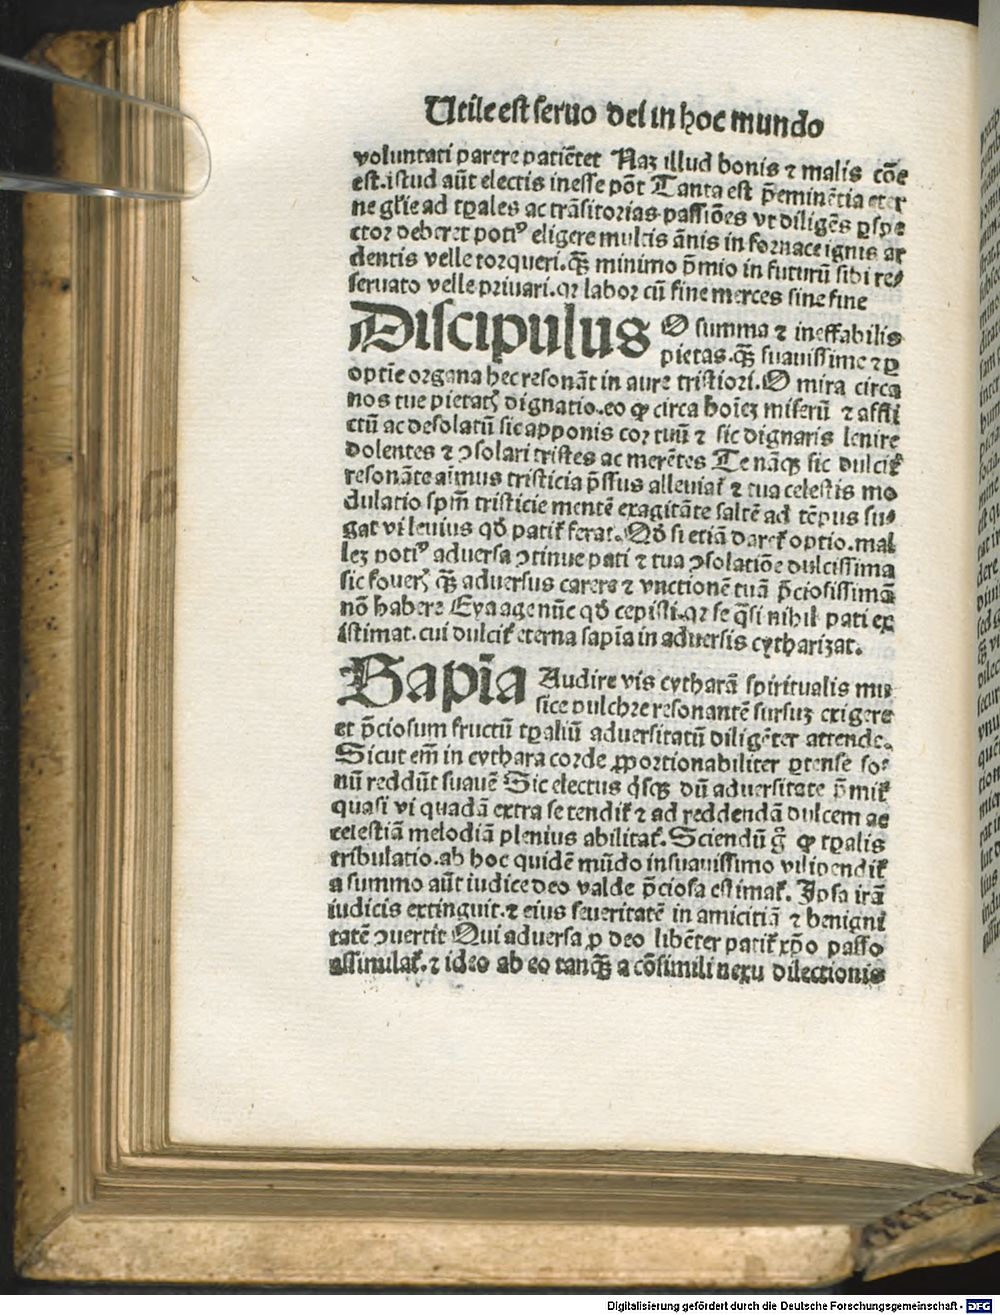 Utile est seruo dei in hoc mundo
voluntati parere patiētet Naʒ illud bonis ⁊ malis cōe
est. istud aūt electis inesse pōt Tanta est p̄eminētia eter
ne gl'ie ad tꝑales ac trāsitorias passiōes vt diligēs ꝓspe
ctor deberet potiꝰ eligere multis ānis in fornace ignis ar
dentis velle torqueri. qȝ̄ minimo p̄mio in futurū sibi re⸗
seruato velle priuari. qꝛ labor cū fine merces sine fine
Discipulus O summa ⁊ ineffabilis
pietas. qȝ̄ suauissime ⁊ ꝑ
optīe organa hec resonāt in aure tristiori. O mira circa
nos tue pietatꝭ dignatio. eo ꝙ circa hoīeʒ miserū ⁊ affli
ctū ac desolatū sic apponis cor tuū ⁊ sic dignaris lenire
dolentes ⁊ ↄsolari tristes ac merētes Te nāqȝ sic dulcit᷑
resonāte aīmus tristicia p̄ssus alleuiat᷑ ⁊ tua celestis mo
dulatio spm̄ tristicie mentē exagitāte saltē ad tēpus fu⸗
gat vt leuius qd̄ patit᷑ ferat. Qd̄ si etiā daret᷑ optio. mal
leʒ potiꝰ aduersa ↄtinue pati ⁊ tua ↄsolatiōe dulcissima
sic foueri qȝ̄ aduersus carere ⁊ vnctionē tuā p̄ciosissimā
nō habere Eya age nūc qd̄ cepisti. qꝛ se q̄si nihil pati ex
istimat. cui dulcit᷑ eterna sapīa in aduersis cytharizat.
Sapīa Audire vis cytharā spiritualis mu⸗
sice pulchre resonantē sursuʒ erigere
et p̄ciosum fructū tꝑaliū aduersitatū diligēter attende.
Sicut em̄ in cythara corde ꝓportionabiliter ꝓtense so⸗
nū reddūt suauē Sic electus qⁱsqȝ dū aduersitate p̄mit᷑
quasi vi quadā extra se tendit᷑ ⁊ ad reddendā dulcem ac
celestiā melodiā plenius abilitat᷑. Sciendū gͦ ꝙ tꝑalis
tribulatio. ab hoc quidē mūdo insuauissimo vilipendit᷑
a summo aūt iudice deo valde p̄ciosa estimat᷑. Ipsa irā
iudicis extinguit. ⁊ eius seueritatē in amicitiā ⁊ benigni
tatē ↄuertit Qui aduersa ꝓ deo libēter patit᷑ xp̄o passo
assimilat᷑. ⁊ ideo ab eo tanqȝ̄ a cōsimili nexu dilectionis
Digitalisierung gefördert durch die Deutsche Forschungsgemeinschaft - DFG